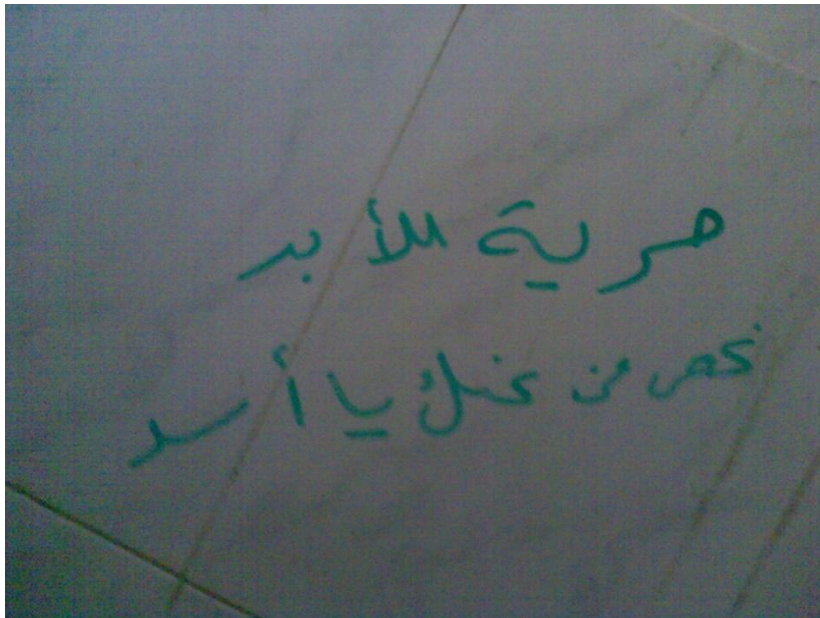 حرية للأبد
من عنك يا أسد